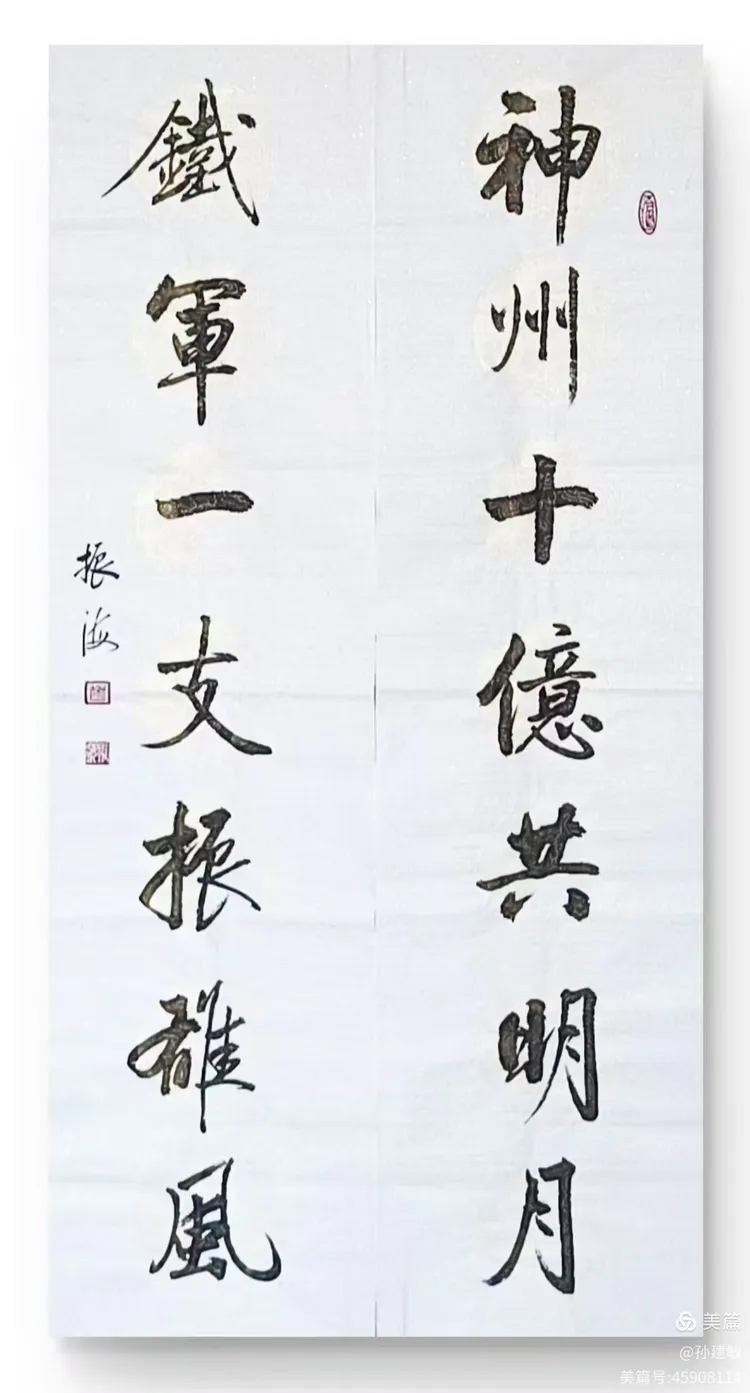 神州十億共明月
鐵軍一支振雄風
振海
美篇
@孙建敏
美篇号:45908114